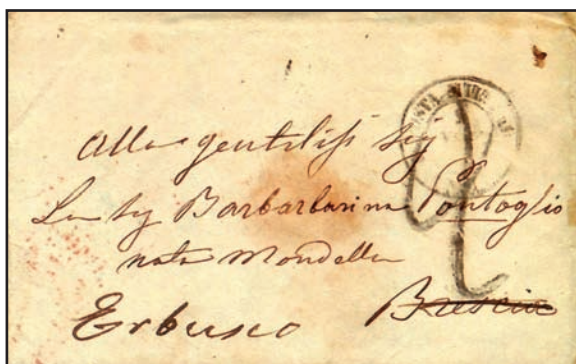 Alla gentiliss Sig
La Sig Barbarbarina Pontoglio
nata Mondella
Erbusco Brescia